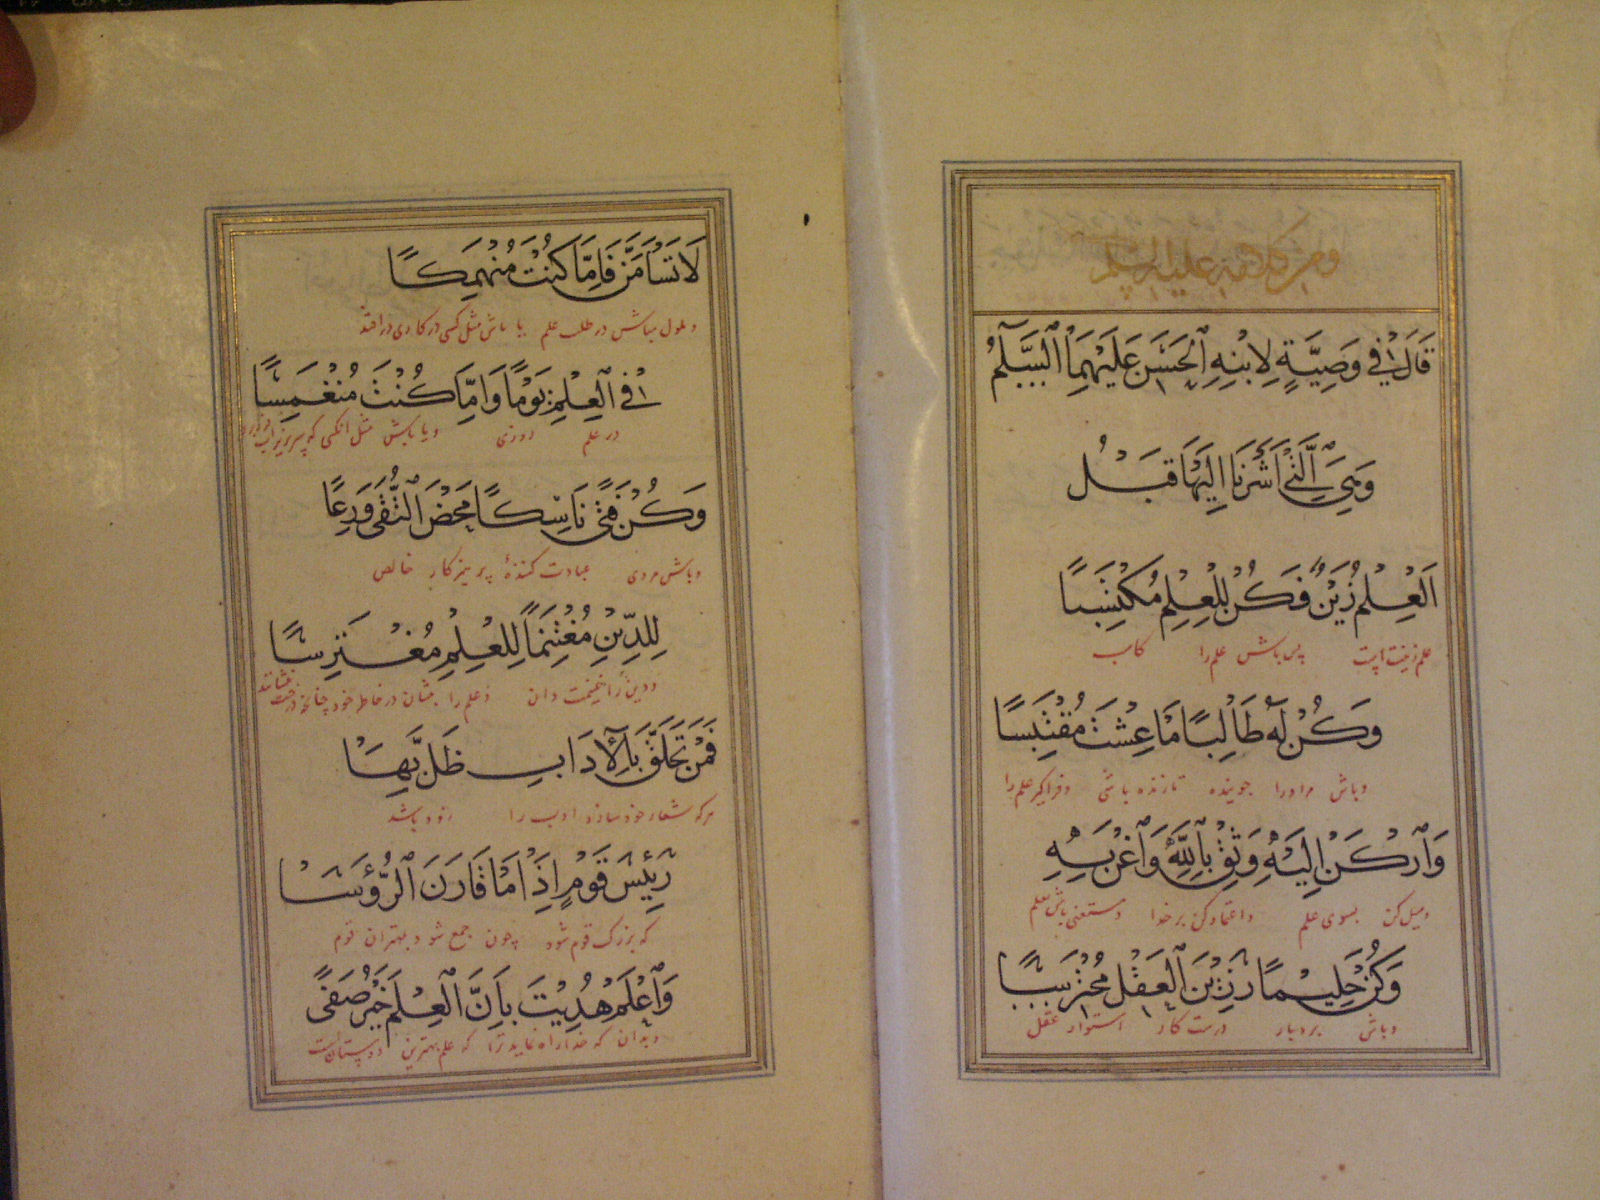 ومن كلامه عليه السلم
قَالَ فِي وَصِيَّةٍ لِابْنِهِ الْحَسَنِ عَلَيْهِمَا السَّلَمُ
وَهِيَ الَّتِي أَشَرْنَا إِلَيْهَا قَبْلُ
اَلْعِلْمُ زَيْنٌ فَكُنْ لِلْعِلْمِ مُكْتَسِبًا
علم زینت است پس باش علم را کاسب
وَكُنْ لَهُ طَالِبًا مَا عِشْتَ مُقْتَبِسًا
و باش مر او را جوینده تا زنده باشی و فراگیر علم را
وَارْكَنْ إِلَيْهِ وَثِقْ بِاللَّهِ وَاغْنَ بِهِ
و میل کن بسوی علم و اعتماد کن بر خدا و مستغنی باش بعلم
وَكُنْ حَلِيمًا رَزِينَ الْعَقْلِ مُحْتَرِسًا
و باش بردبار درست کار استوار عقل
لَا تَسْأَمَنَّ فَإِمَّا كُنْتَ مُنْهَمِكًا
و ملول مباش در طلب علم یا باش مثل کسی در کاری در افتد
فِي الْعِلْمِ يَوْمًا وَإِمَّا كُنْتَ مُنْغَمِسًا
در علم روزی و یا باش مثل آنکسی که سر بزیر آب
وَكُنْ فَتًى نَاسِكًا مَحْضَ التُّقَى وَرِعًا
و باش مردی عبادت کنندهٔ پرهیزکار خالص
لِلدِّينِ مُغْتَنِمًا لِلْعِلْمِ مُغْتَرِسًا
و دین را غنیمت دان و علم را بنشان در خاطر خود چنانکه درخت نشانند
فَمَنْ تَخَلَّقَ بِالْآدَابِ ظَلَّ بِهَا
هر که شعار خود سازد ادب را زود باشد
رَئِيسَ قَوْمٍ إِذَا مَا فَارَقَ الرُّؤَسَا
که بزرگ قوم شود چون جمع شود بهتران قوم
وَاعْلَمْ هُدِيتَ بِأَنَّ الْعِلْمَ خَيْرُ صَفًى
و بدان که خدا راه نماید ترا که علم بهترین دوستان است